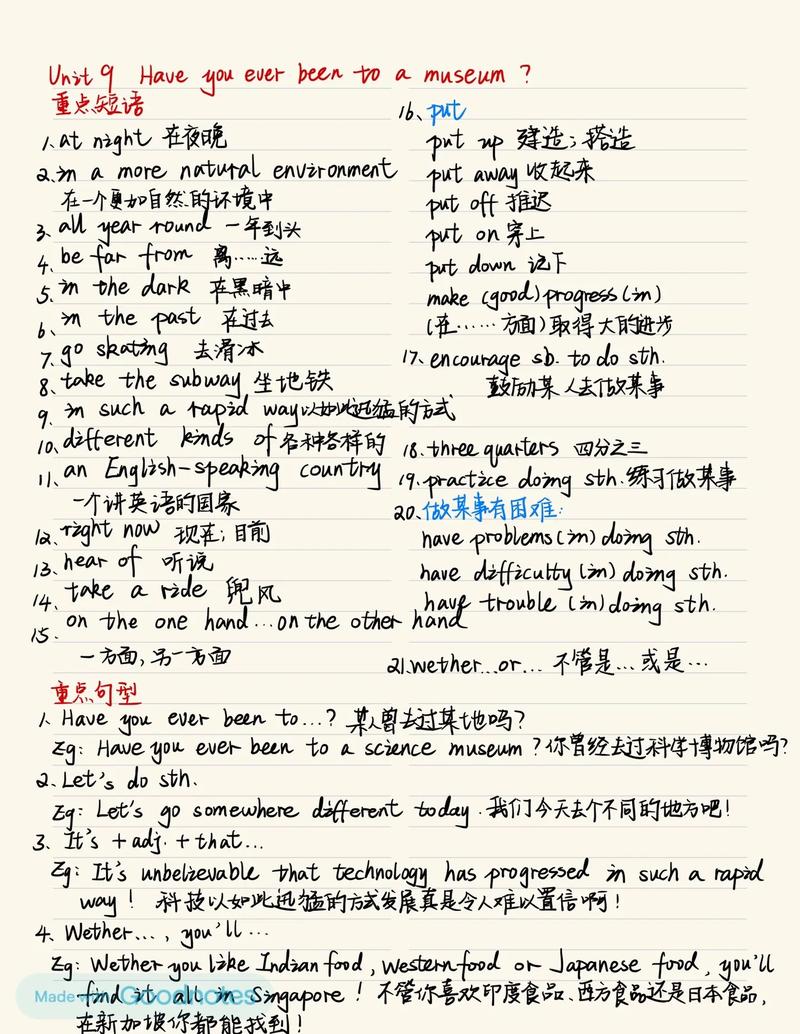 Unit 9 Have you ever been to a museum ?
重点短语
1、at night 在夜晚
2、in a more natural environment
在一个更加自然的环境中
3、all year round 一年到头
4、be far from 离……远
5、in the dark 在黑暗中
6、in the past 在过去
7、go skating 去滑冰
8、take the subway 坐地铁
9、in such a rapid way以如此迅猛的方式
10、different kinds of各种各样的
11、an English-speaking country
一个讲英语的国家
12、right now 现在；目前
13、hear of 听说
14、take a ride 兜风
15、on the one hand…on the other hand
一方面，另一方面
16、put
put up 建造；搭造
put away 收起来
put off 推迟
put on 穿上
put down 记下
make (good) progress (in)
(在……方面)取得大的进步
17、encourage sb. to do sth.
鼓励某人去做某事
18、three quarters 四分之三
19、practice doing sth.练习做某事
20、做某事有困难：
have problems (in) doing sth.
have difficulty (in) doing sth.
have trouble (in) doing sth.
21、wether…or… 不管是…或是…
重点句型
1、Have you ever been to…? 某人曾去过某地吗?
Eg: Have you ever been to a science museum ?你曾经去过科学博物馆吗?
2、Let's do sth.
Eg: Let's go somewhere different today. 我们今天去个不同的地方吧!
3、It's + adj. + that…
Eg: It's unbelievable that technology has progressed in such a rapid
way ! 科技以如此迅猛的方式发展真是令人难以置信啊!
4、Wether…, you'll…
Eg: Wether you like Indian food, western food or Japanese food, you'll
find it all in Singapore ! 不管你喜欢印度食品、西方食品还是日本食品,
在新加坡你都能找到!
Made with Goodnotes